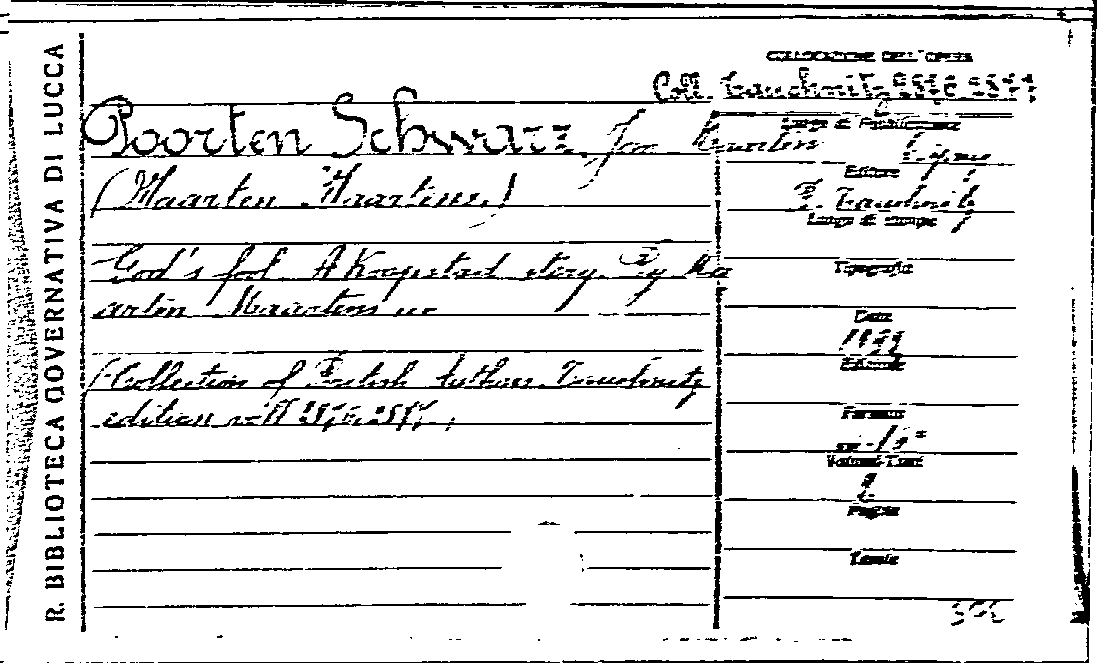 R. BIBLIOTECA GOVERNATIVA DI LUCCA
COLLOCAZIONE DELL'OPERA
Coll. Tauchnitz
Poorten Schwarz, Jos Maarten
(Maarten Maartens)
God's fool. A Koopstad story. By Ma
arten Maartens
(Collection of British Authors. Tauchnitz
edition
Luogo di Pubblicazione
Editore
B. Tauchnitz
Luogo di stampa
Tipografia
Data
Edizione
Formato
in-16°
Volumi-Tomi
2
Pagine
Tavole